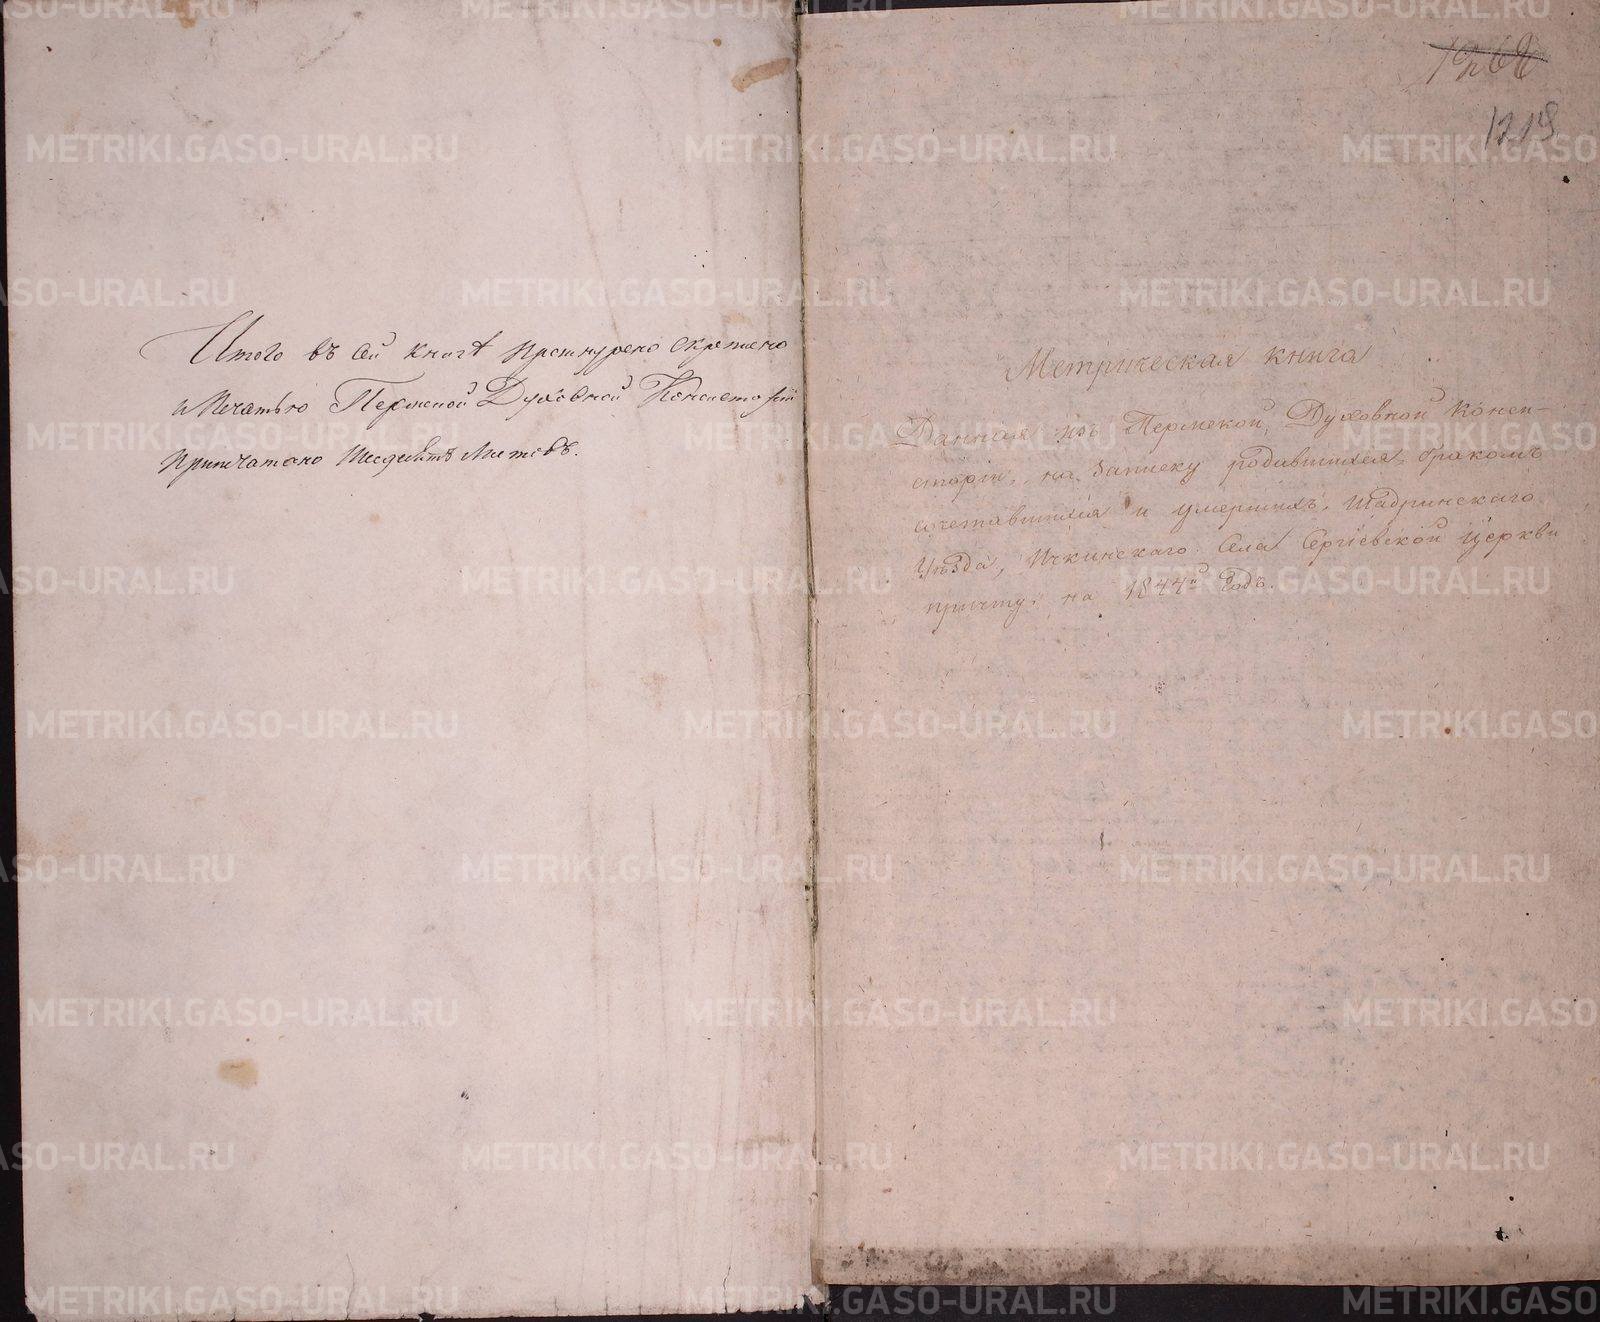 Итого въ сей книгѣ прошнурено скреплено
и Печатью Пермской Духовной Консисторіи
припечатано листовъ.
1268
1219
Метрическая книга
Данная изъ Пермской Духовной Конси-
сторіи, на записку родившихся, бракомъ
сочетавшихся и умершихъ, Шадринскаго
Уѣзда, Ичкинскаго Села Сергіевской церкви
причту, на 1844й Годъ.
METRIKI.GASO-URAL.RU